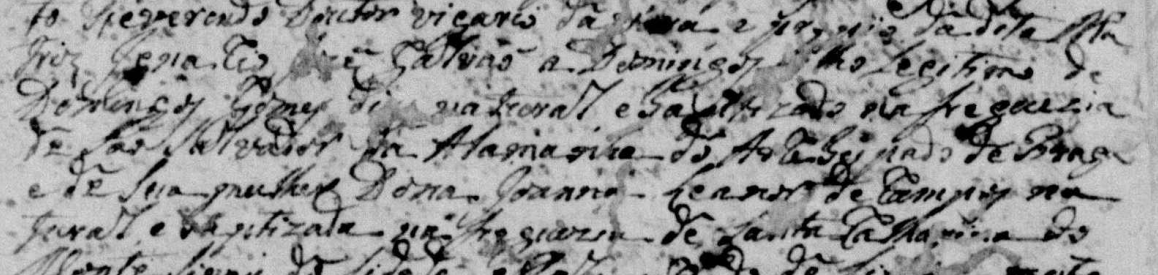 to Reverendo Doutor vigario da vara e da dita Ma
triz Ignacio Galvão a Domingos filho legitimo de
Domingos Gomes di natural e baptizado na freguezia
de São Salvador da do Arcebispado de Braga
e de sua mulher Dona Joanna Leanor de Campos na
tural e baptizada na freguezia de Santa Catharina do
Monte de